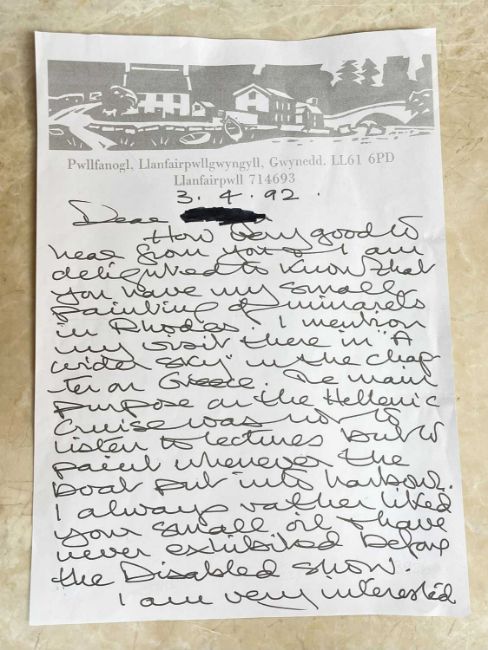 Pwllfanogl, Llanfairpwllgwyngyll, Gwynedd. LL61 6PD
Llanfairpwll 714693
3.4.92.
Dear
How very good to
hear from you & I am
delighted to know that
you have my small
painting of minarets
in Rhodes. I mention
my visit there in "A
wide sky" in the chap
ter on Greece. The main
purpose on the Hellenic
Cruise was not to
listen to lectures but to
paint whenever the
boat put into harbour.
I always rather liked
your small oil & have
never exhibited before
the Disabled show.
I am very interested